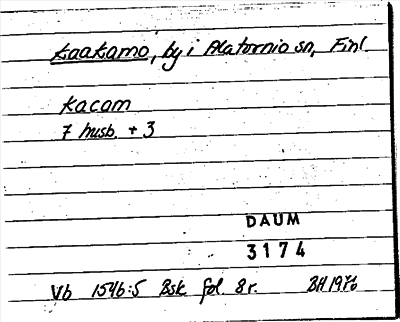 Kaakamo, by i Alatornio sn, Finl.
Kacam
7 husb. + 3
DAUM
3174
Vb 1546:5 Bsk fol 8r. BH 1976